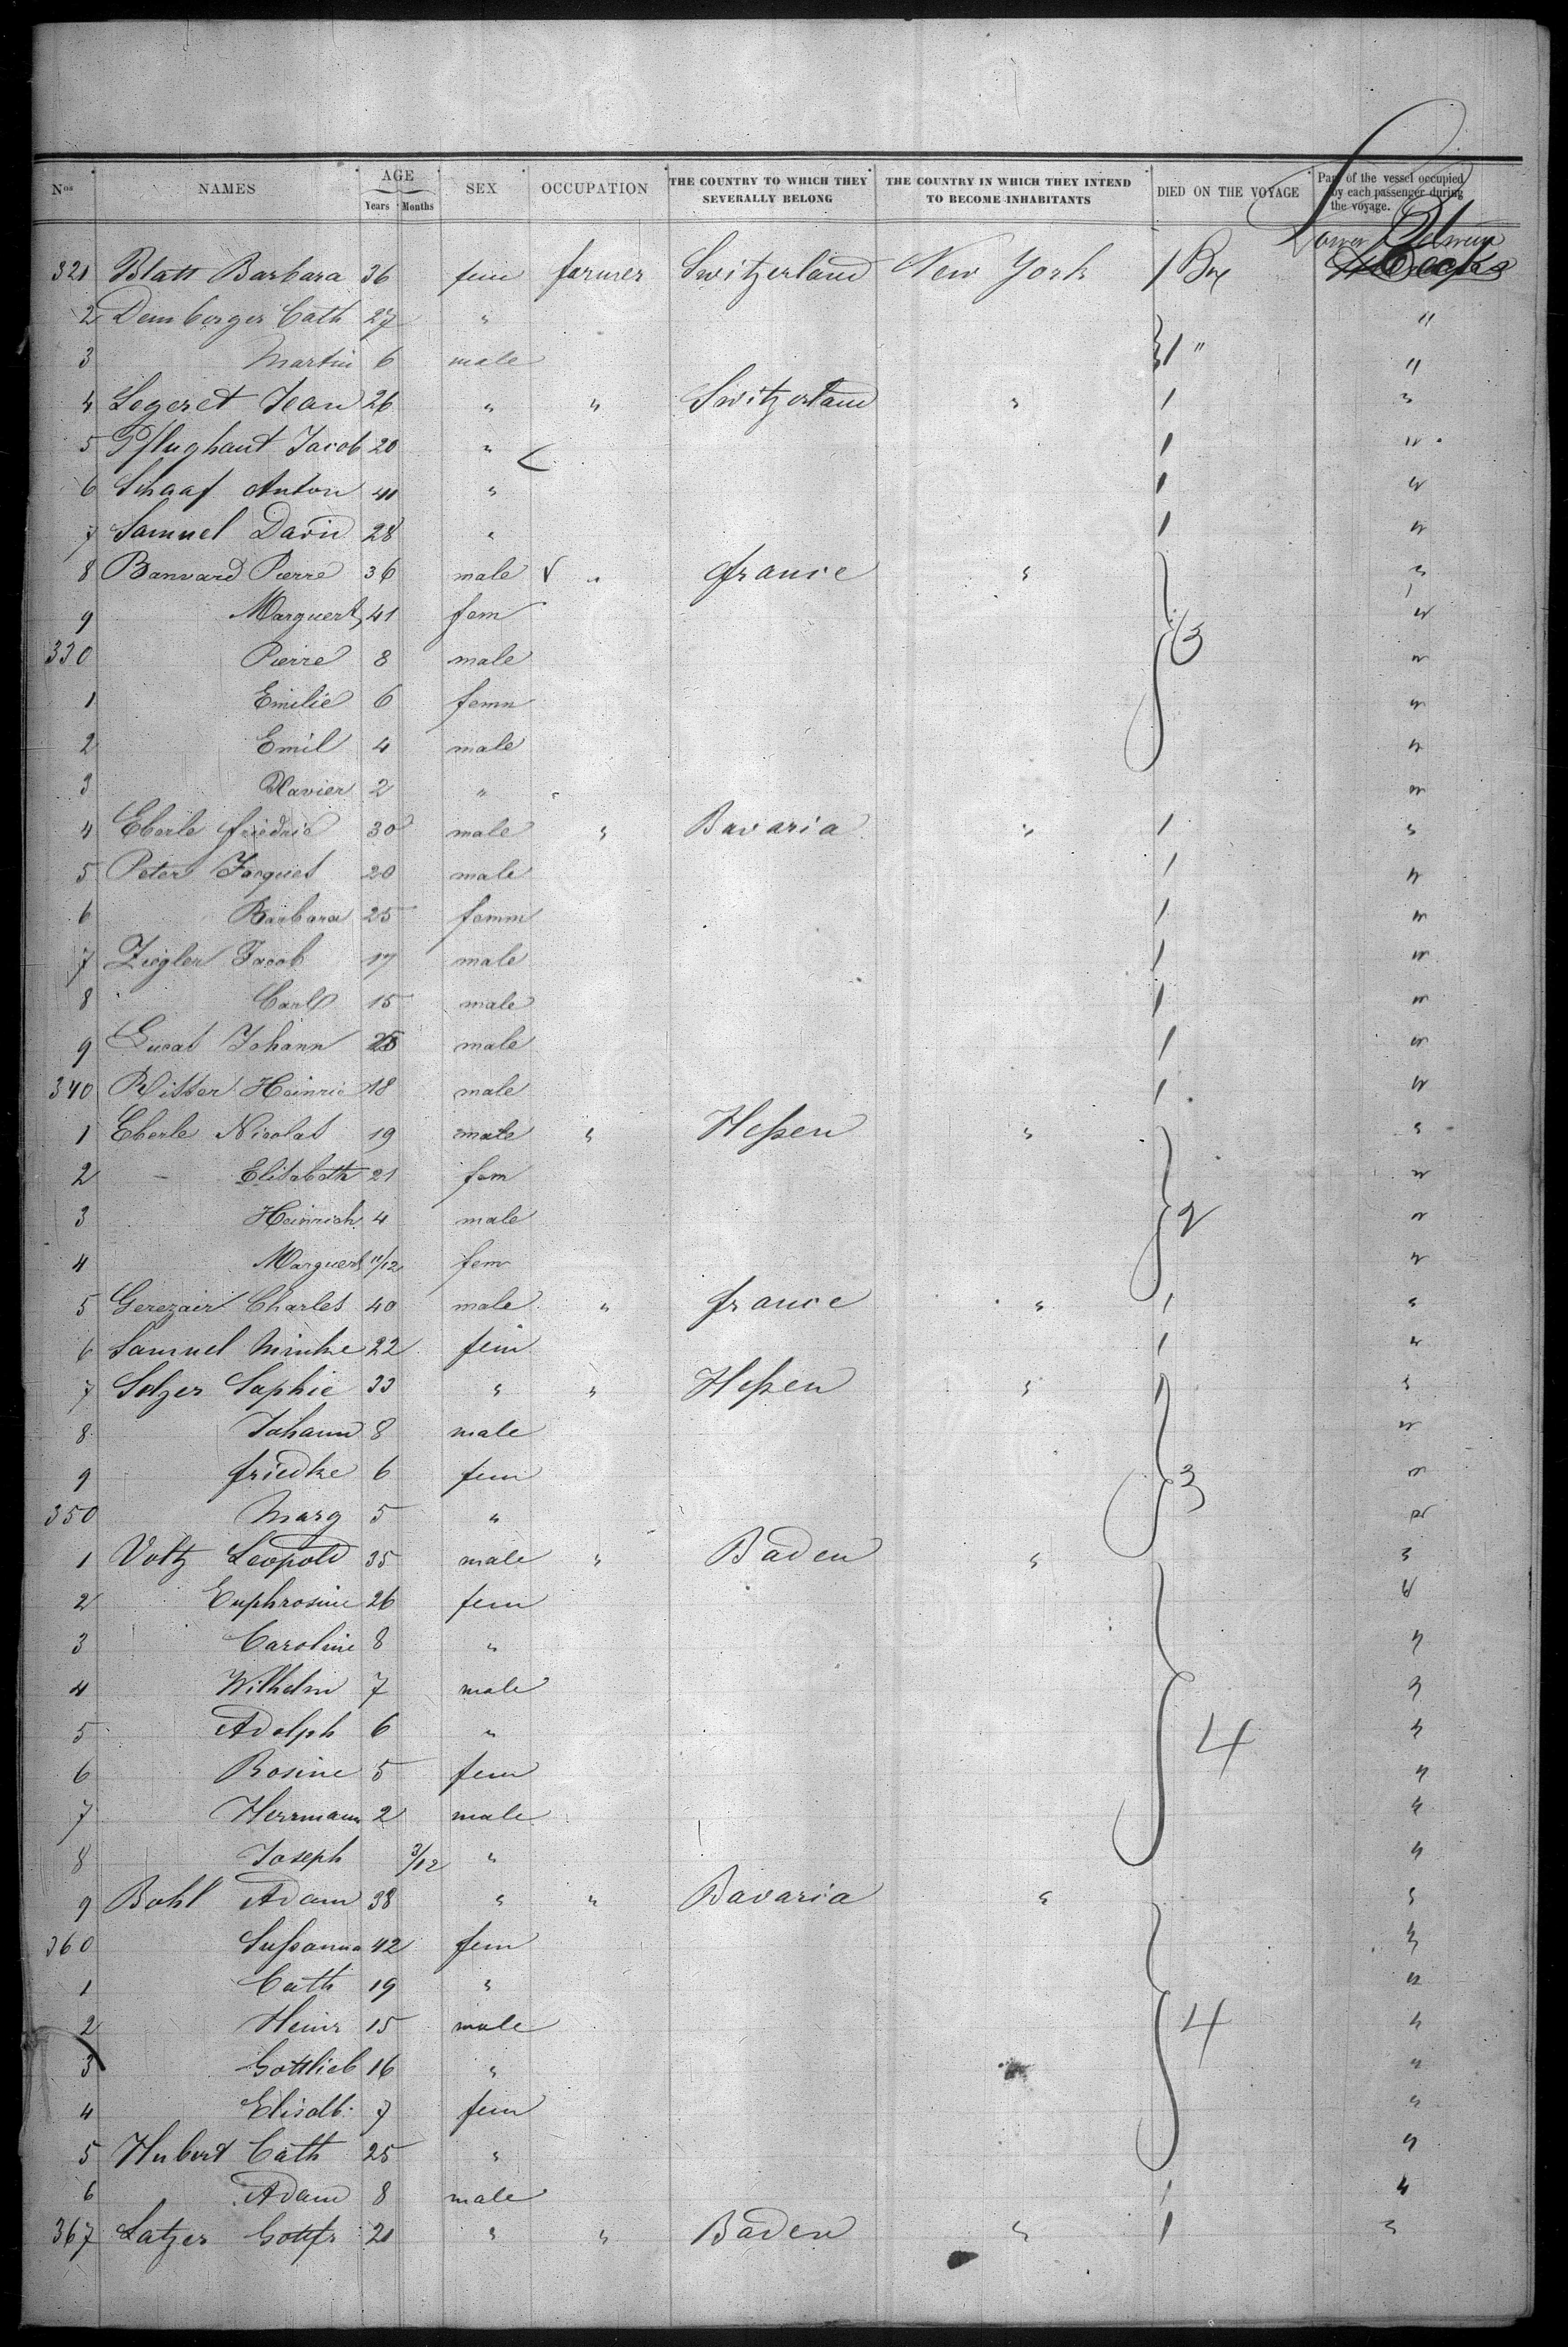 Nos NAMES AGE Years Months SEX OCCUPATION THE COUNTRY TO WHICH THEY SEVERALLY BELONG THE COUNTRY IN WHICH THEY INTEND TO BECOME INHABITANTS DIED ON THE VOYAGE Part of the vessel occupied by each passenger during the voyage.
Lower Between
321 Blatt Barbara 36 fem farmer Switzerland New York 1 Bx Decks
2 Demberger Cath 27 " "
3 Martin 6 male 1 " "
4 Legeret Jean 26 " " Switzerland " 1 "
5 Pflughaut Jacob 20 " 1 "
6 Schaaf Anton 41 " 1 "
7 Samuel David 28 " 1 "
8 Banvard Pierre 36 male " france " "
9 Marguert 41 fem 3 "
330 Pierre 8 male "
1 Emilie 6 femn "
2 Emil 4 male "
3 Xavier 2 " "
4 Eberle friedric 30 male " Bavaria " 1 "
5 Peter Jacques 20 male 1 "
6 Barbara 25 femm 1 "
7 Ziegler Jacob 17 male 1 "
8 Carl 15 male 1 "
9 Lucas Johann male 1 "
340 Ritter Heinric 18 male 1 "
1 Eberle Nicolas 19 male " Heßen " "
2 Elisabeth 21 fem "
3 Heinrich 4 male 2 "
4 Marguert 11/12 fem "
5 Gerezair Charles 40 male " france " 1 "
6 Samuel Minke 22 fem 1 "
7 Selzer Sophie 33 " " Heßen " "
8 Johann 8 male "
9 friedke 6 fem 3 "
350 Marg 5 " "
1 Voltz Leopold 35 male " Baden " "
2 Euphrosine 26 fem "
3 Caroline 8 " "
4 Wilhelm 7 male "
5 Adolph 6 " 4 "
6 Rosine 5 fem "
7 Herrmann 2 male "
8 Joseph 3/12 " "
9 Bohl Adam 38 " " Bavaria " "
360 Sußanna 42 fem "
1 Cath 19 " "
2 Heinr 15 male 4 "
3 Gottlieb 16 " "
4 Elisatb. 7 fem "
5 Hubert Cath 25 " "
6 Adam 8 male 1 "
367 Latzer Gottfr 21 " " Baden " 1 "